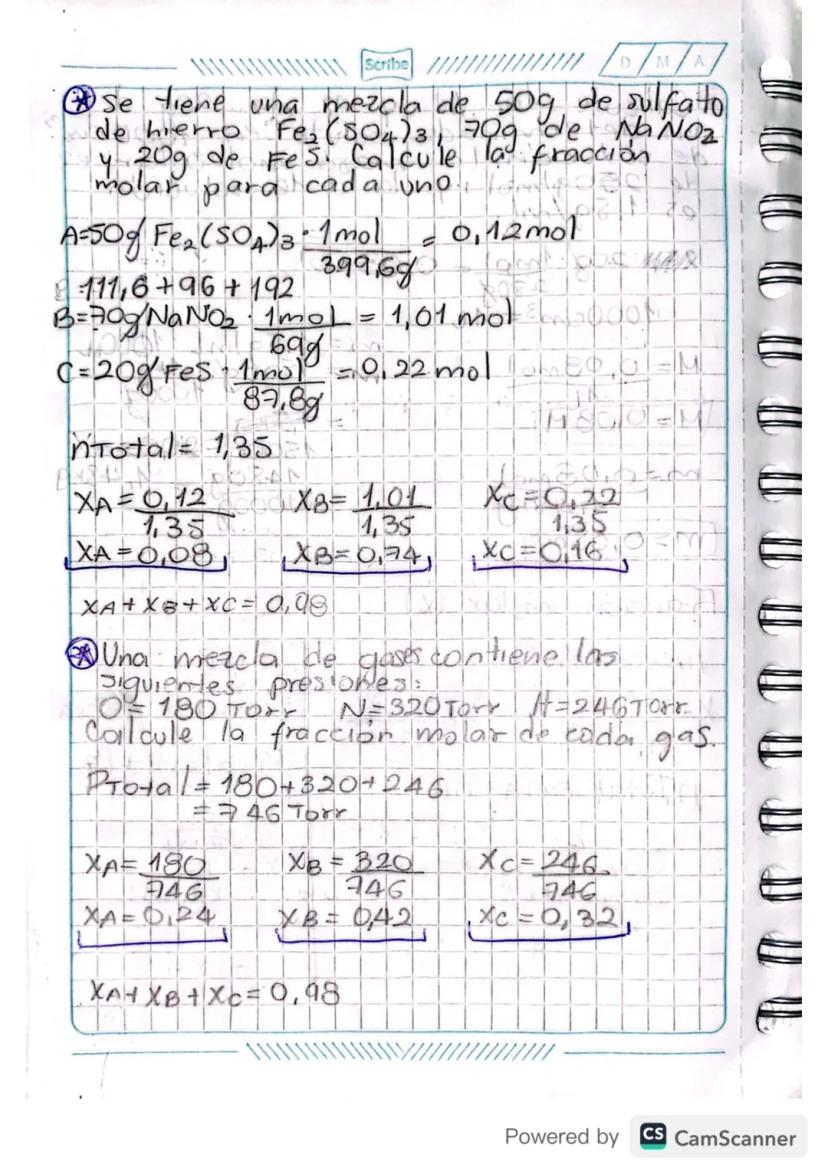 Scribe
D / M / A
Se tiene una mezcla de 50g de sulfato
de hierro Fe₂(SO₄)₃, 70g de NaNO₂
y 20g de FeS. Calcule la fracción
molar para cada uno.
A=50g Fe₂(SO₄)₃ · 1mol/399,6g = 0,12mol
111,6+96+192
B=70g NaNO₂ · 1mol/69g = 1,01 mol
C=20g FeS · 1mol/87,8g = 0,22 mol
nTotal= 1,35
XA=0,12/1,35 XB=1,01/1,35 XC=0,22/1,35
XA=0,08 XB=0,74 XC=0,16
XA+XB+XC=0,98
Una mezcla de gases contiene las
siguientes presiones:
O=180 Torr N=320 Torr H=246 Torr
Calcule la fracción molar de cada gas.
PTotal=180+320+246
=746 Torr
XA=180/746 XB=320/746 XC=246/746
XA=0,24 XB=0,42 XC=0,32
XA+XB+XC=0,98
Powered by CS CamScanner